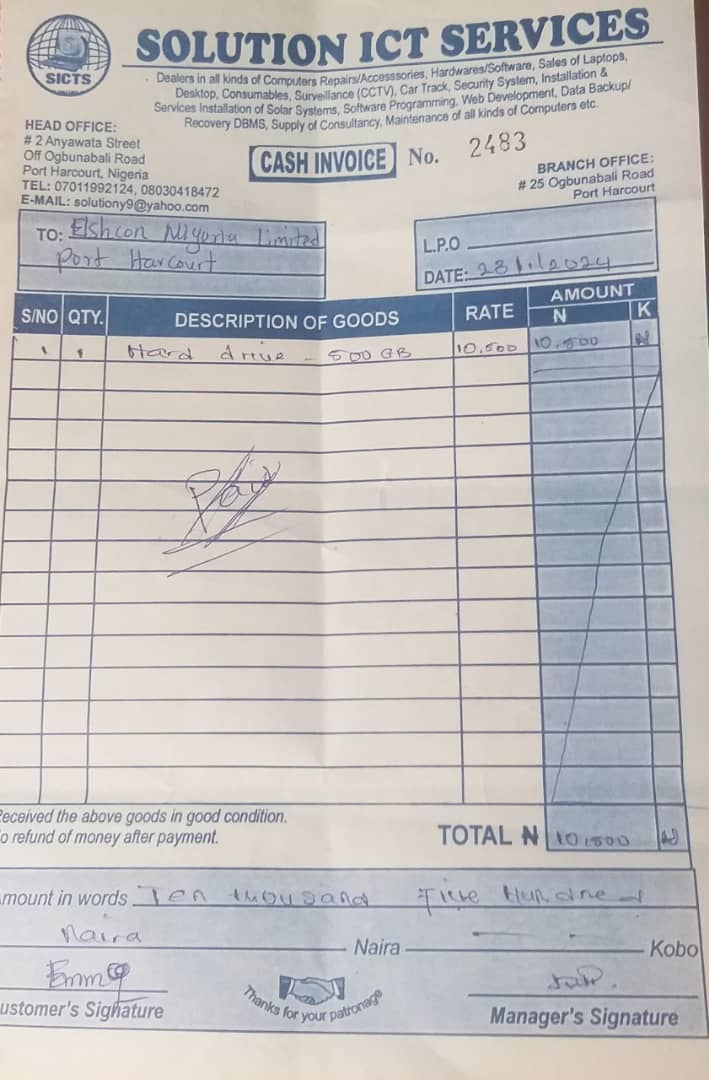 SICTS
SOLUTION ICT SERVICES
Dealers in all kinds of Computers Repairs/Accesssories, Hardwares/Software, Sales of Laptops,
Desktop, Consumables, Surveillance (CCTV), Car Track, Security System, Installation &
Services Installation of Solar Systems, Software Programming, Web Development, Data Backup/
Recovery DBMS, Supply of Consultancy, Maintenance of all kinds of Computers etc.
HEAD OFFICE:
# 2 Anyawata Street
Off Ogbunabali Road
Port Harcourt, Nigeria
TEL: 07011992124, 08030418472
E-MAIL: solutiony9@yahoo.com
CASH INVOICE No. 2483
BRANCH OFFICE:
# 25 Ogbunabali Road
Port Harcourt
TO: Elshcon Nigeria Limited
Port Harcourt
L.P.O
DATE: 2024
S/NO QTY. DESCRIPTION OF GOODS RATE AMOUNT
N K
1 1 Hard drive - 500 GB 10,500 10,500 N
Paid
Received the above goods in good condition.
o refund of money after payment.
TOTAL N 10,500 N
mount in words Ten thousand Five Hundred
Naira Naira - - Kobo
Emma
ustomer's Signature
Thanks for your patronage
Manager's Signature